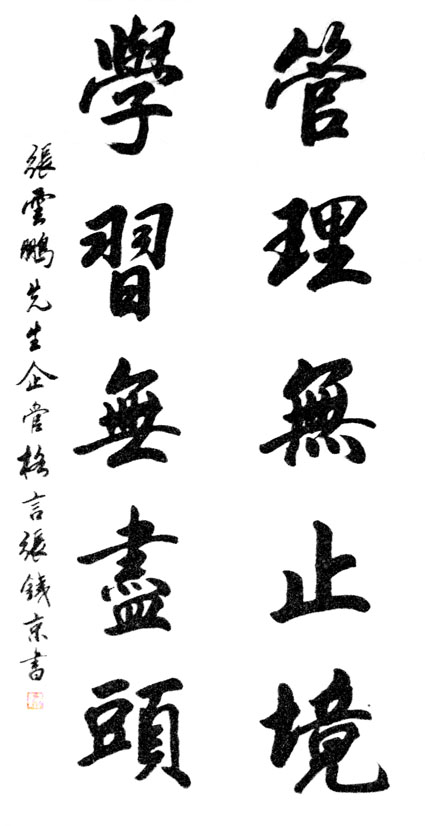 管理無止境
學習無盡頭
張雲鵬先生企管格言張錢京書